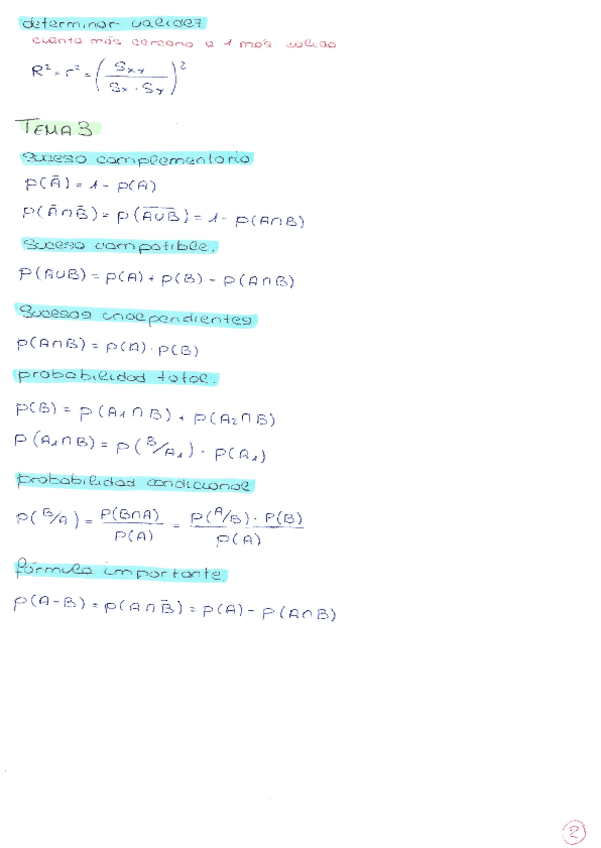 determinar validez
cuanto más cercano a 1 más valido
R² = r² = (Sxy / Sx · Sy)²
TEMA 3
suceso complementario
p(Ā) = 1 - p(A)
p(Ā∩B̄) = p(A̅U̅B̅) = 1 - p(A∩B)
Suceso compatible.
P(AUB) = p(A) + p(B) - p(A∩B)
Sucesos independientes
p(A∩B) = p(A) · p(B)
probabilidad total.
p(B) = p(A₁∩B) + p(A₂∩B)
p(A₁∩B) = p(B/A₁) · p(A₁)
probabilidad condicional
p(B/A) = P(B∩A) / P(A) = P(A/B) · P(B) / p(A)
fórmula importante.
p(A-B) = p(A∩B̄) = p(A) - p(A∩B)
2